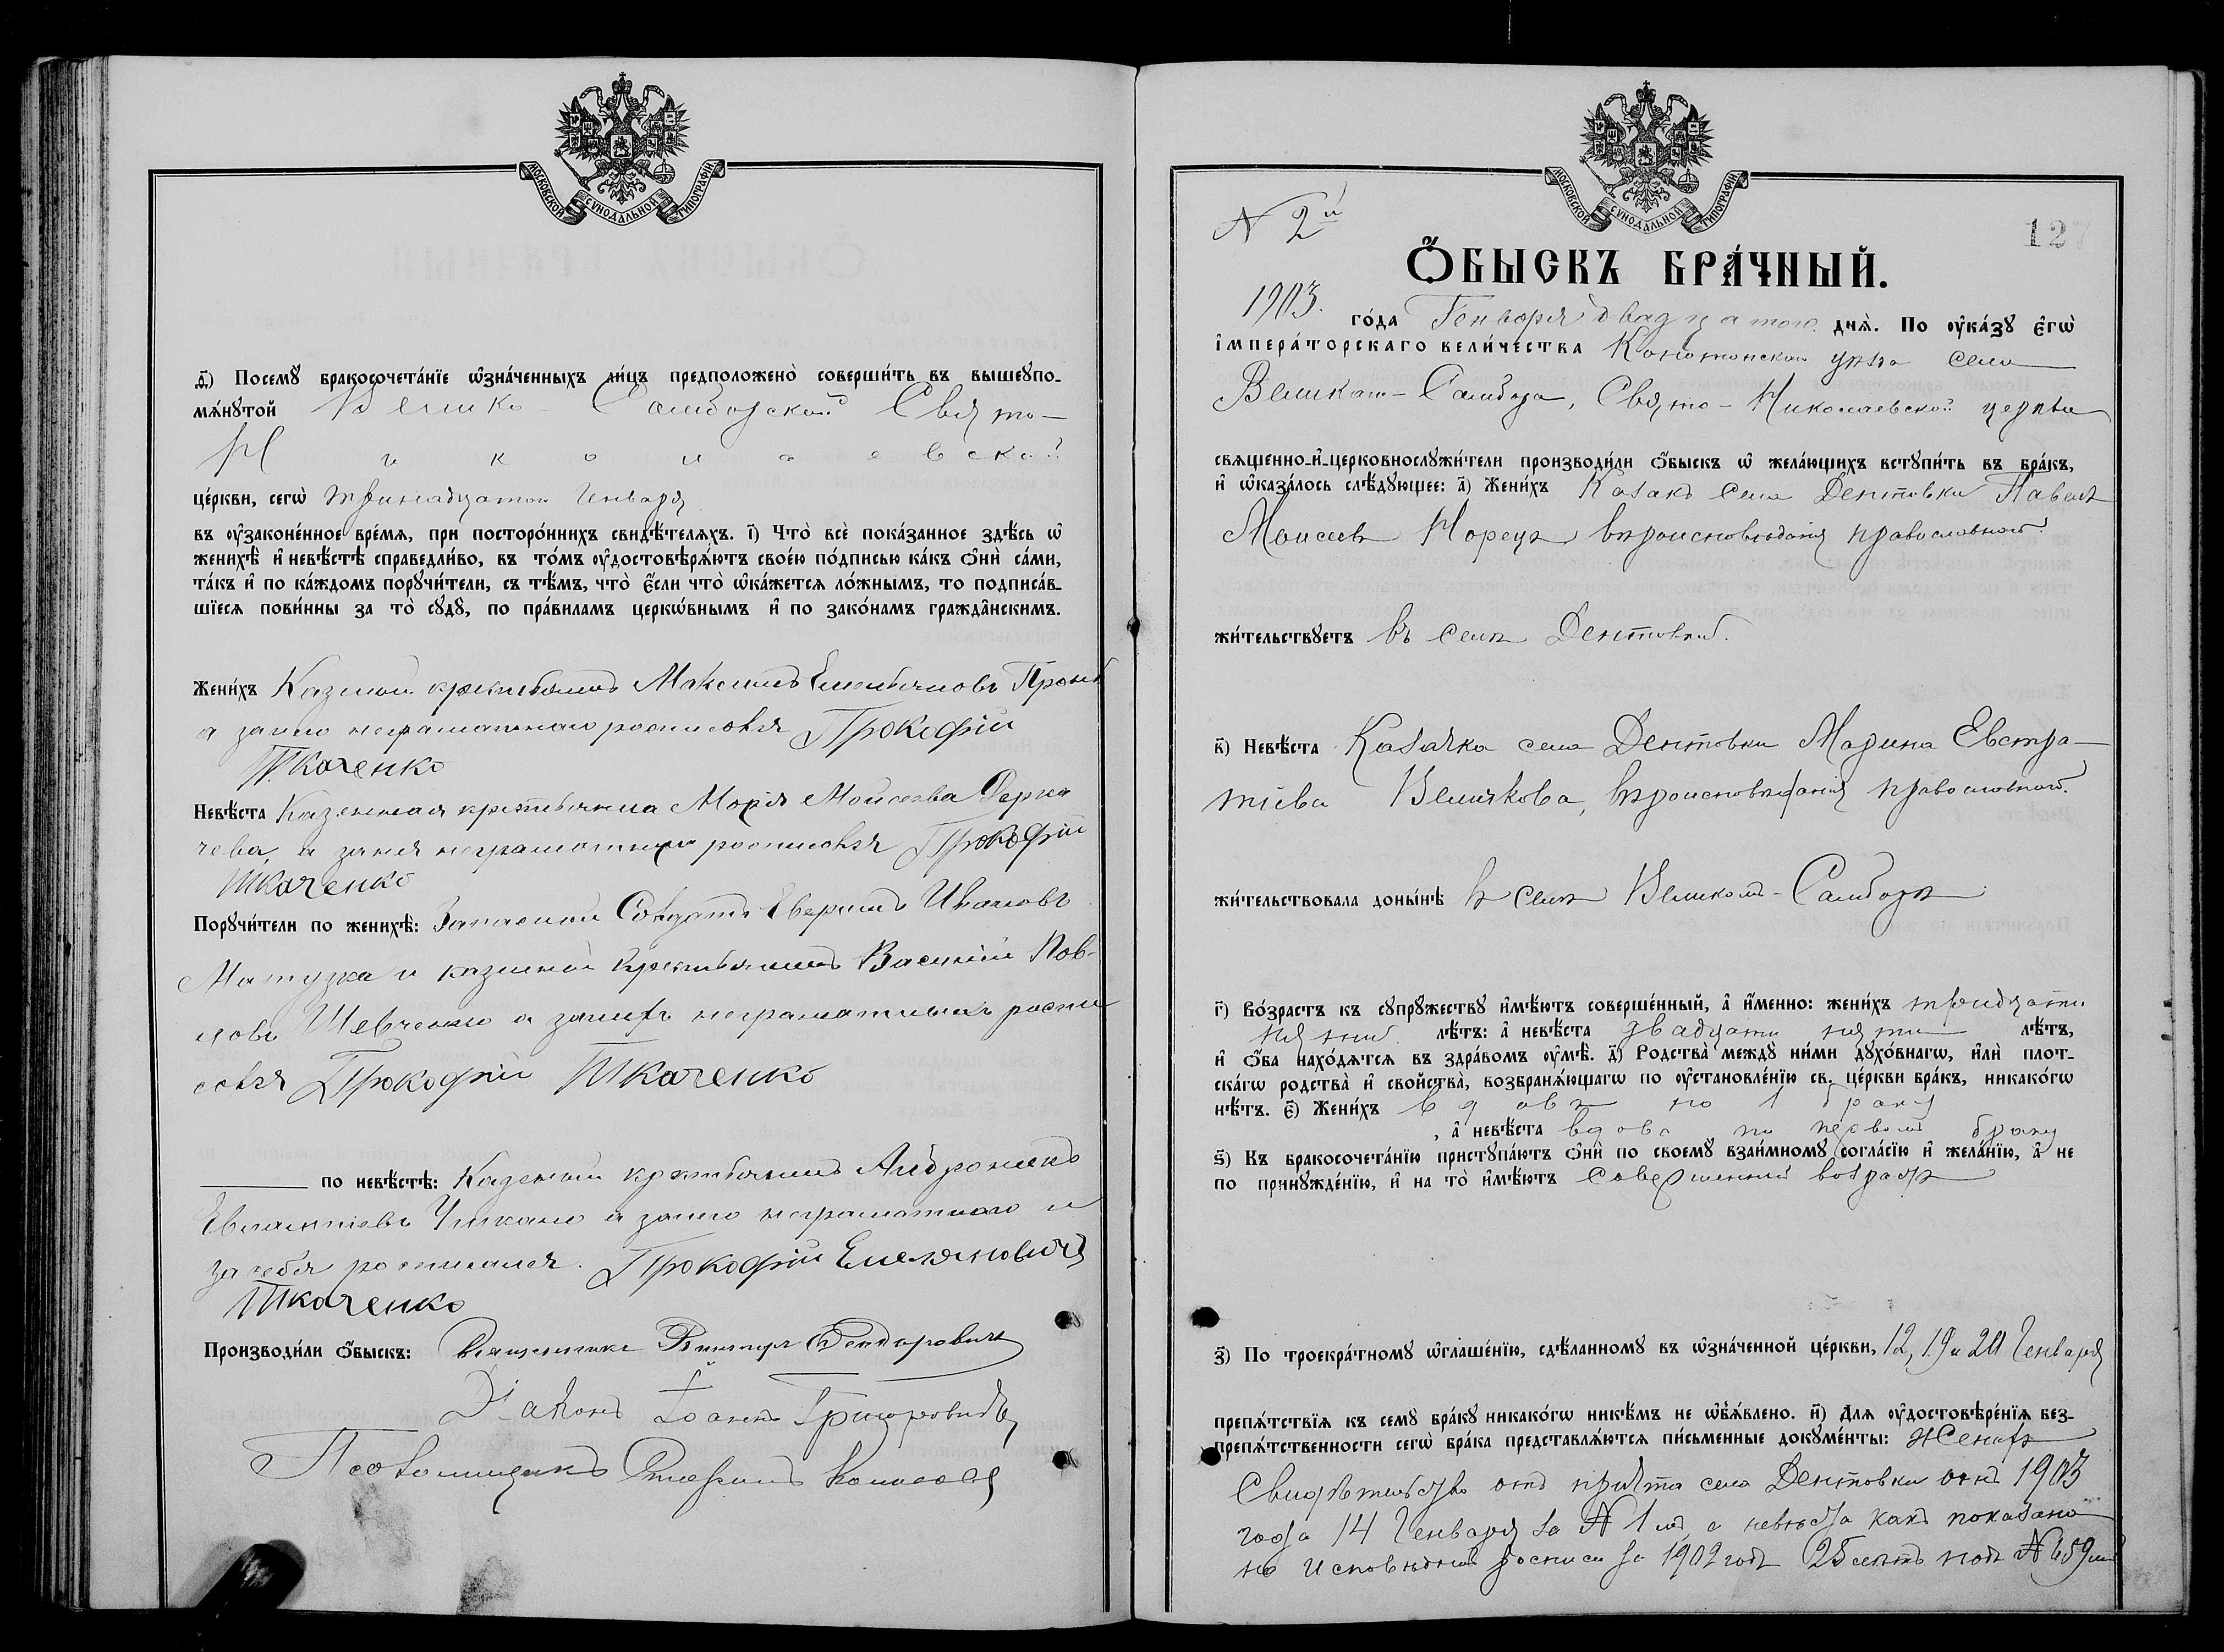 МОСКОВСКОЙ СУНОДАЛЬНОЙ ТИПОГРАФІИ
д҃) Посемꙋ̀ бракосочета́нїе ѡ҆зна́ченныхъ ли́цъ предположено̀ соверши́ть въ вышеꙋпо-
мѧ́нꙋтой Велико-Самборской Свято-
Николаевской
це́ркви, сегѡ̀ тринадцатаго Генваря
въ ᲂу҆законе́нное вре́мѧ, при посторо́ннихъ свидѣ́телѧхъ. і҃) Что̀ всѐ пока́занное здѣ́сь ѡ҆
женихѣ̀ и҆ невѣ́стѣ справедли́во, въ то́мъ ᲂу҆достовѣрѧ́ютъ свое́ю по́дписью ка́къ ѻ҆нѝ са́ми,
та́къ и҆ по ка́ждомъ порꙋчи́тели, съ тѣ́мъ, что̀ є҆́сли что̀ ѡ҆ка́жетсѧ ло́жнымъ, то подписа́в-
шїесѧ пови́нны за то̀ сꙋдꙋ̀, по пра́виламъ церко́внымъ и҆ по зако́намъ гражда́нскимъ.
Жени́хъ Казенный крестьянинъ Максимъ Емельяновъ
а за него неграмотнаго росписовся Прокофій
Ткаченко
Невѣ́ста Казенная крестьянка Марія Моисеева Дерка
чева, а за нея неграмотную росписовся Прокофій
Ткаченко
Порꙋчи́тели по женихѣ̀: Запасный Солдатъ Иванов
и казенный крестьянинъ Василій Пов-
ловъ Шевченко а за них неграмотныхъ роспи
совся Прокофій Ткаченко
по невѣ́стѣ: Казенный крестьянинъ Андроникъ
а за него неграмотнаго и
за себя росписался. Прокофій Емеляновичъ
Ткаченко
Производи́ли ѻ҆́быскъ: Священникъ Викторъ
Діаконъ Іоаннъ Григоровичъ
Псаломщикъ
МОСКОВСКОЙ СУНОДАЛЬНОЙ ТИПОГРАФІИ
N 2й
127
Ѻ҆́БЫСКЪ БРА́ЧНЫЙ.
1903. го́да Генваря двадцатаго днѧ̀. По ᲂу҆ка́зꙋ є҆гѡ̀
і҆мпера́торскаго вели́чества Конотопскаго уѣзда села
Великаго-Самбора, Свято-Николаевской церкви
свѧщенно-и҆-церковнослꙋжи́тели производи́ли ѻ҆́быскъ ѡ҆ жела́ющихъ встꙋпи́ть въ бра́къ,
и҆ ѡ҆каза́лось слѣ́дꙋющее: а҃) Жени́хъ Казакъ села Дептовки Павелъ
Моисеев Норецъ, вѣроисповѣданія православнаго.
жи́тельствꙋетъ въ селѣ Дептовкѣ.
в҃) Невѣ́ста Казачка села Дептовки Марина Евстра-
тіева Величкова, вѣроисповѣданія православнаго.
жи́тельствовала доны́нѣ в селѣ Великомъ-Самборѣ
г҃) Во́зрастъ къ сꙋпрꙋ́жествꙋ и҆мѣ́ютъ соверше́нный, а҆ и҆́менно: жени́хъ тридцати
пяти лѣ́тъ: а҆ невѣ́ста двадцати пяти лѣ́тъ,
и҆ ѻ҆́ба нахо́дѧтсѧ въ здра́вомъ ᲂу҆мѣ̀. д҃) Родства̀ междꙋ̀ ни́ми дꙋхо́внагѡ, и҆лѝ плот-
ска́гѡ родства̀ и҆ свойства̀, возбранѧ́ющагѡ по ᲂу҆становле́нїю св. це́ркви бра́къ, никако́гѡ
нѣ́тъ. є҃) Жени́хъ вдовъ по 1 браку
, а҆ невѣ́ста вдова по первомъ браку
ѕ҃) Къ бракосочета́нїю пристꙋпа́ютъ ѻ҆нѝ по своемꙋ̀ взаи́мномꙋ согла́сїю и҆ жела́нїю, а҆ не
по принꙋжде́нїю, и҆ на то̀ и҆мѣ́ютъ совершенный возрастъ
з҃) По троекра́тномꙋ ѡ҆глаше́нїю, сдѣ́ланномꙋ въ ѡ҆зна́ченной це́ркви, 12, 19 и 20 Генваря
препѧ́тствїѧ къ семꙋ̀ бра́кꙋ никако́гѡ никѣ́мъ не ѡ҆б̾ѧ́влено. и҃) Длѧ ᲂу҆достовѣре́нїѧ без-
препѧ́тственности сегѡ̀ бра́ка представлѧ́ютсѧ пи́сьменные докꙋме́нты: Жениха
Свидѣтельство отъ причта села Дептовки отъ 1903
года 14 Генваря за N 1мъ, а невѣста какъ показано
по исповѣдной росписи за 1902 годъ 25 лѣтъ подъ N 659мъ